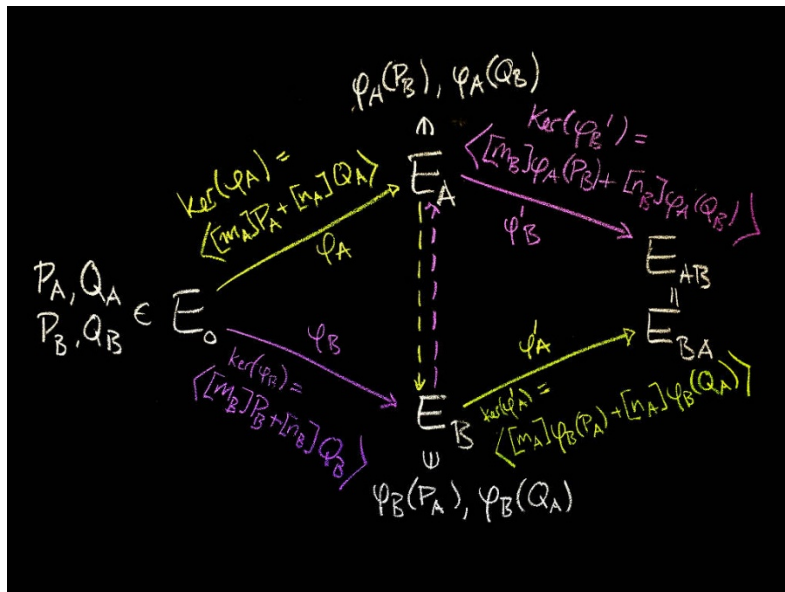 φ_A(P_B), φ_A(Q_B)
∈
E_A
ker(φ_A) =
⟨[m_A]P_A+[n_A]Q_A⟩
φ_A
ker(φ_B') =
⟨[m_B]φ_A(P_B)+[n_B]φ_A(Q_B)⟩
φ'_B
P_A, Q_A
P_B, Q_B ∈ E_0
E_AB
=
E_BA
φ_B
ker(φ_B) =
⟨[m_B]P_B+[n_B]Q_B⟩
φ'_A
ker(φ'_A) =
⟨[m_A]φ_B(P_A)+[n_A]φ_B(Q_A)⟩
E_B
∈
φ_B(P_A), φ_B(Q_A)